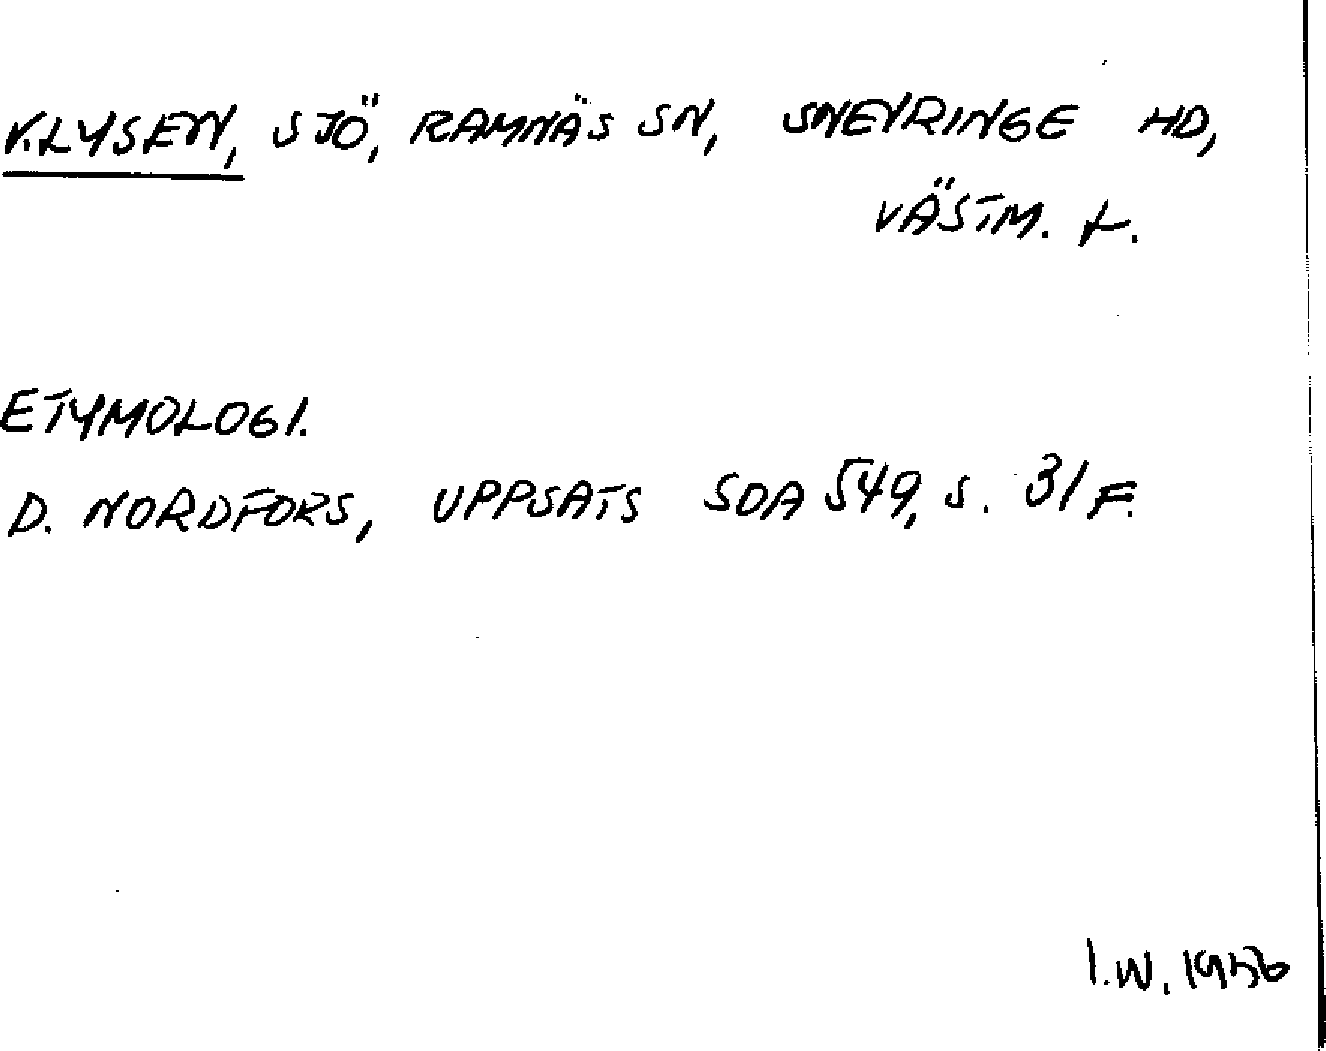 V.LYSEN, SJÖ, RAMNÄS SN, SNEVRINGE HD,
VÄSTM. L.
ETYMOLOGI.
D. NORDFORS, UPPSATS SOA 549, S. 31 F.
I.W. 1956